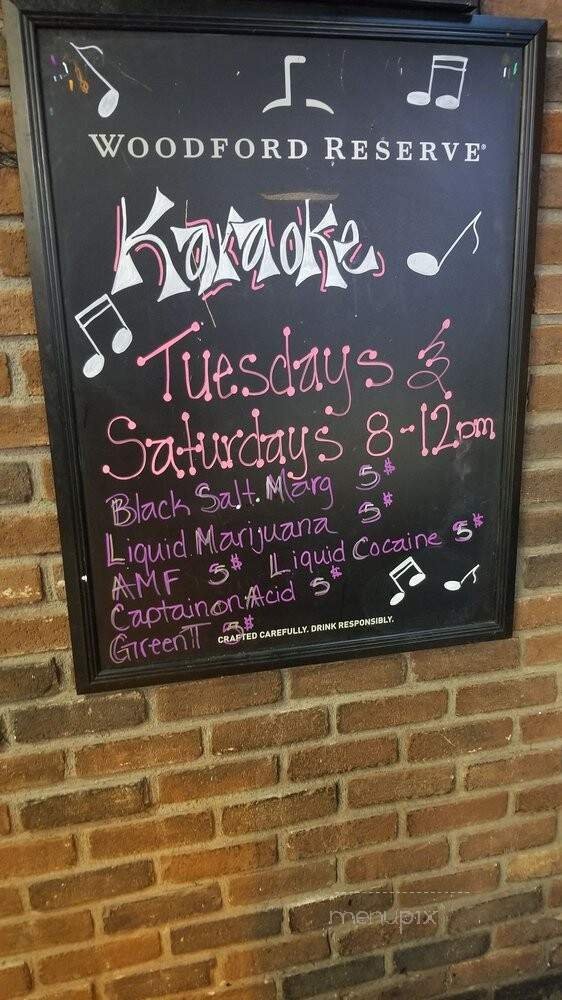 WOODFORD RESERVE®
Karaoke
Tuesdays &
Saturdays 8-12pm
Black Salt Marg 5$
Liquid Marijuana 5$
AMF 5$ Liquid Cocaine 5$
Captain on Acid 5$
GreenT 5$
CRAFTED CAREFULLY. DRINK RESPONSIBLY.
menupix